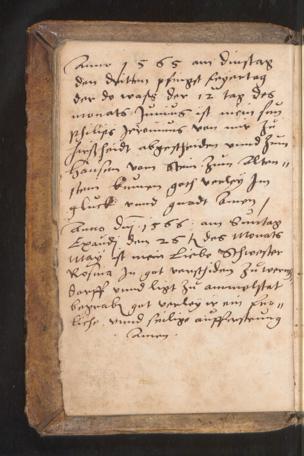 Anno 1565 am dinstag
den dritten pfingst feyertag
der do wass der 12 tag des
monats Junius ist mein sun
philips Jeronimus von mir zu
abgescheiden vnnd zum
hansen vom stein zum Alten=
stein kumen gott verley Im
gluck vnnd gnadt Amen /
Anno dm 1566 am Suntag
Exaudi den 26 des Monats
May ist mein Liebe Schwester
Rosina In got verschiden zu wern=
dorff vnnd ligt zu
begrab got verley ir ein fro=
liche vnnd selige auffersteung
Amen